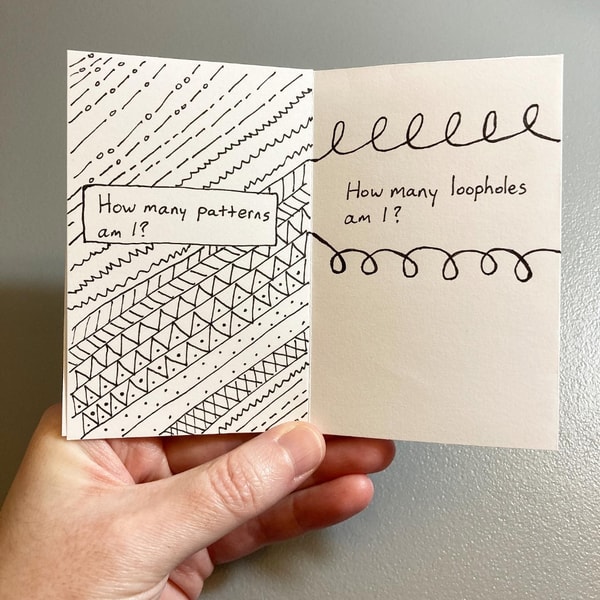 How many patterns
am I?
How many loopholes
am I?